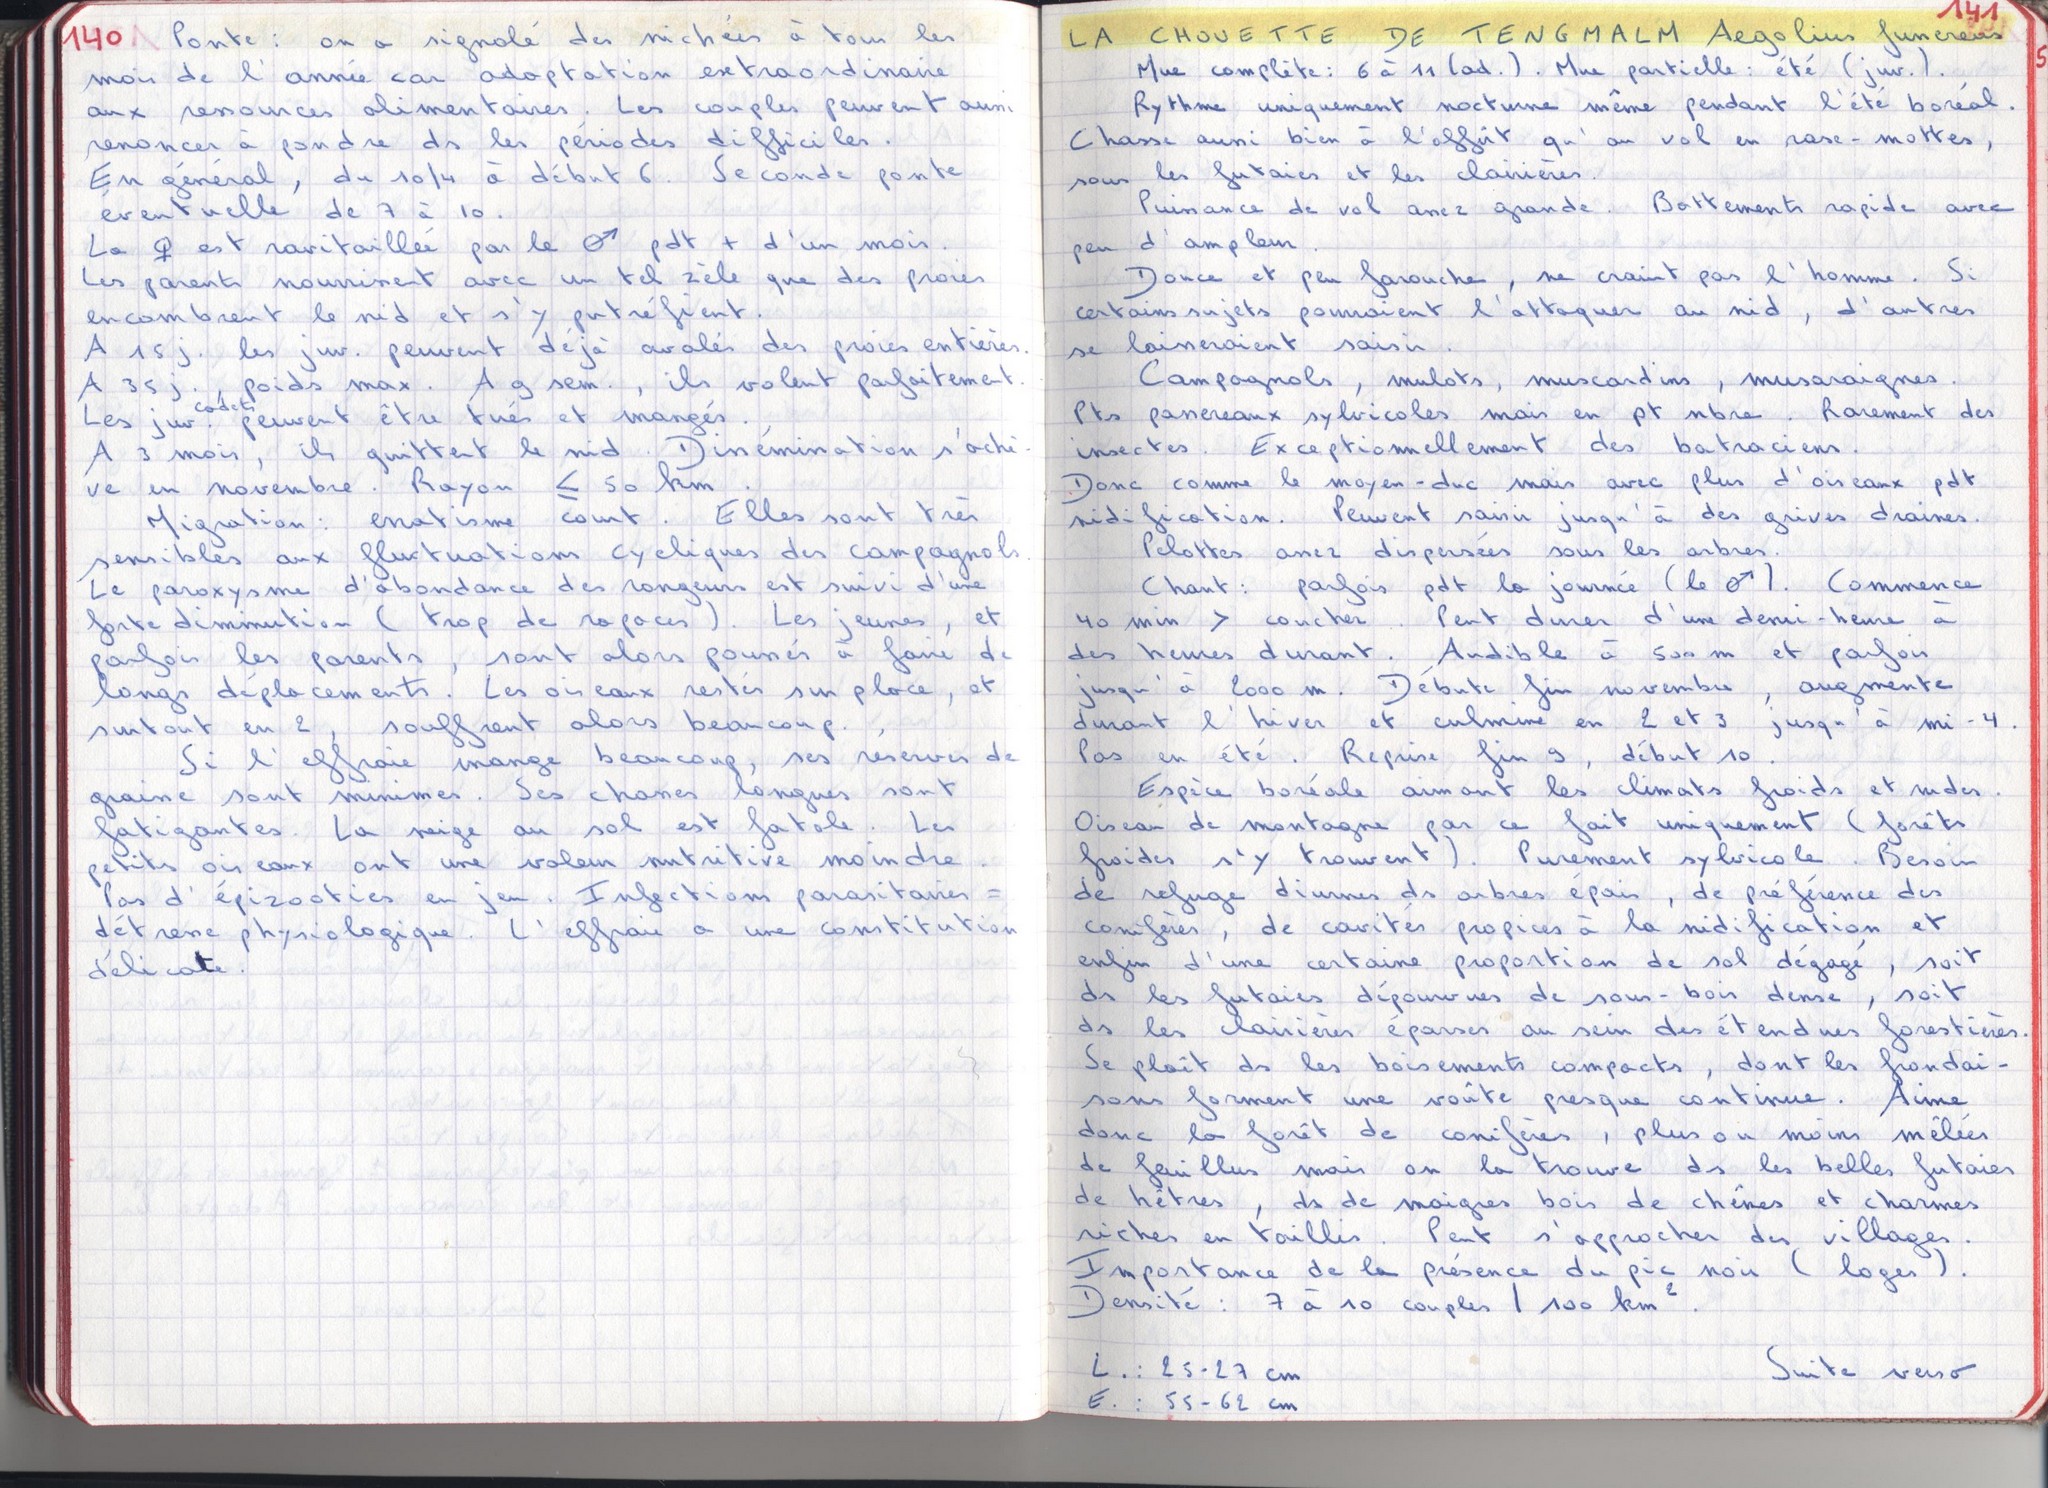 140
Ponte : on a signalé des nichées à tous les
mois de l'année car adaptation extraordinaire
aux ressources alimentaires. Les couples peuvent aussi
renoncer à pondre ds les périodes difficiles.
En général, du 10/4 à début 6. Seconde ponte
éventuelle de 7 à 10.
La ♀ est ravitaillée par le ♂ pdt + d'un mois.
Les parents nourrissent avec un tel zèle que des proies
encombrent le nid et s'y putréfient.
A 15 j. les juv. peuvent déjà avalés des proies entières.
A 35 j., poids max. A 9 sem., ils volent parfaitement.
Les juv. cadets peuvent être tués et mangés.
A 3 mois, ils quittent le nid. Dissémination s'achè-
ve en novembre. Rayon ≤ 50 km.
Migration : erratisme court. Elles sont très
sensibles aux fluctuations cycliques des campagnols.
Le paroxysme d'abondance des rongeurs est suivi d'une
forte diminution (trop de rapaces). Les jeunes, et
parfois les parents, sont alors poussés à faire de
longs déplacements. Les oiseaux restés sur place, et
surtout en 2, souffrent alors beaucoup.
Si l'effraie mange beaucoup, ses réserves de
graisse sont minimes. Ses chasses longues sont
fatigantes. La neige au sol est fatale. Les
petits oiseaux ont une valeur nutritive moindre.
Pas d'épizooties en jeu. Infections parasitaires =
détresse physiologique. L'effraie a une constitution
délicate.
141
LA CHOUETTE DE TENGMALM Aegolius funereus
Mue complète : 6 à 11 (ad.). Mue partielle : été (juv.).
Rythme uniquement nocturne même pendant l'été boréal.
Chasse aussi bien à l'affût qu'au vol en rase-mottes,
sous les futaies et les clairières.
Puissance de vol assez grande. Battements rapide avec
peu d'ampleur.
Douce et peu farouche, ne craint pas l'homme. Si
certains sujets pourraient l'attaquer au nid, d'autres
se laisseraient saisir.
Campagnols, mulots, muscardins, musaraignes.
Pts passereaux sylvicoles mais en pt nbre. Rarement des
insectes. Exceptionnellement des batraciens.
Donc comme le moyen-duc mais avec plus d'oiseaux pdt
nidification. Peuvent saisir jusqu'à des grives draines.
Pelottes assez dispersées sous les arbres.
Chant : parfois pdt la journée (le ♂). Commence
40 min > coucher. Peut durer d'une demi-heure à
des heures durant. Audible à 500 m et parfois
jusqu'à 2000 m. Débute fin novembre, augmente
durant l'hiver et culmine en 2 et 3 jusqu'à mi-4.
Pas en été. Reprise fin 9, début 10.
Espèce boréale aimant les climats froids et rudes.
Oiseau de montagne par ce fait uniquement (forêts
froides s'y trouvent). Purement sylvicole. Besoin
de refuge diurnes ds arbres épais, de préférence des
conifères, de cavités propices à la nidification et
enfin d'une certaine proportion de sol dégagé, soit
ds les futaies dépourvues de sous-bois dense, soit
ds les clairières éparses au sein des étendues forestières.
Se plaît ds les boisements compacts, dont les frondai-
sons forment une voûte presque continue. Aime
donc la forêt de conifères, plus ou moins mêlées
de feuillus mais on la trouve ds les belles futaies
de hêtres, ds de maigres bois de chênes et charmes
riches en taillis. Peut s'approcher des villages.
Importance de la présence du pic noir (loges).
Densité : 7 à 10 couples / 100 km²
L. : 25-27 cm
Suite verso
E. : 55-62 cm